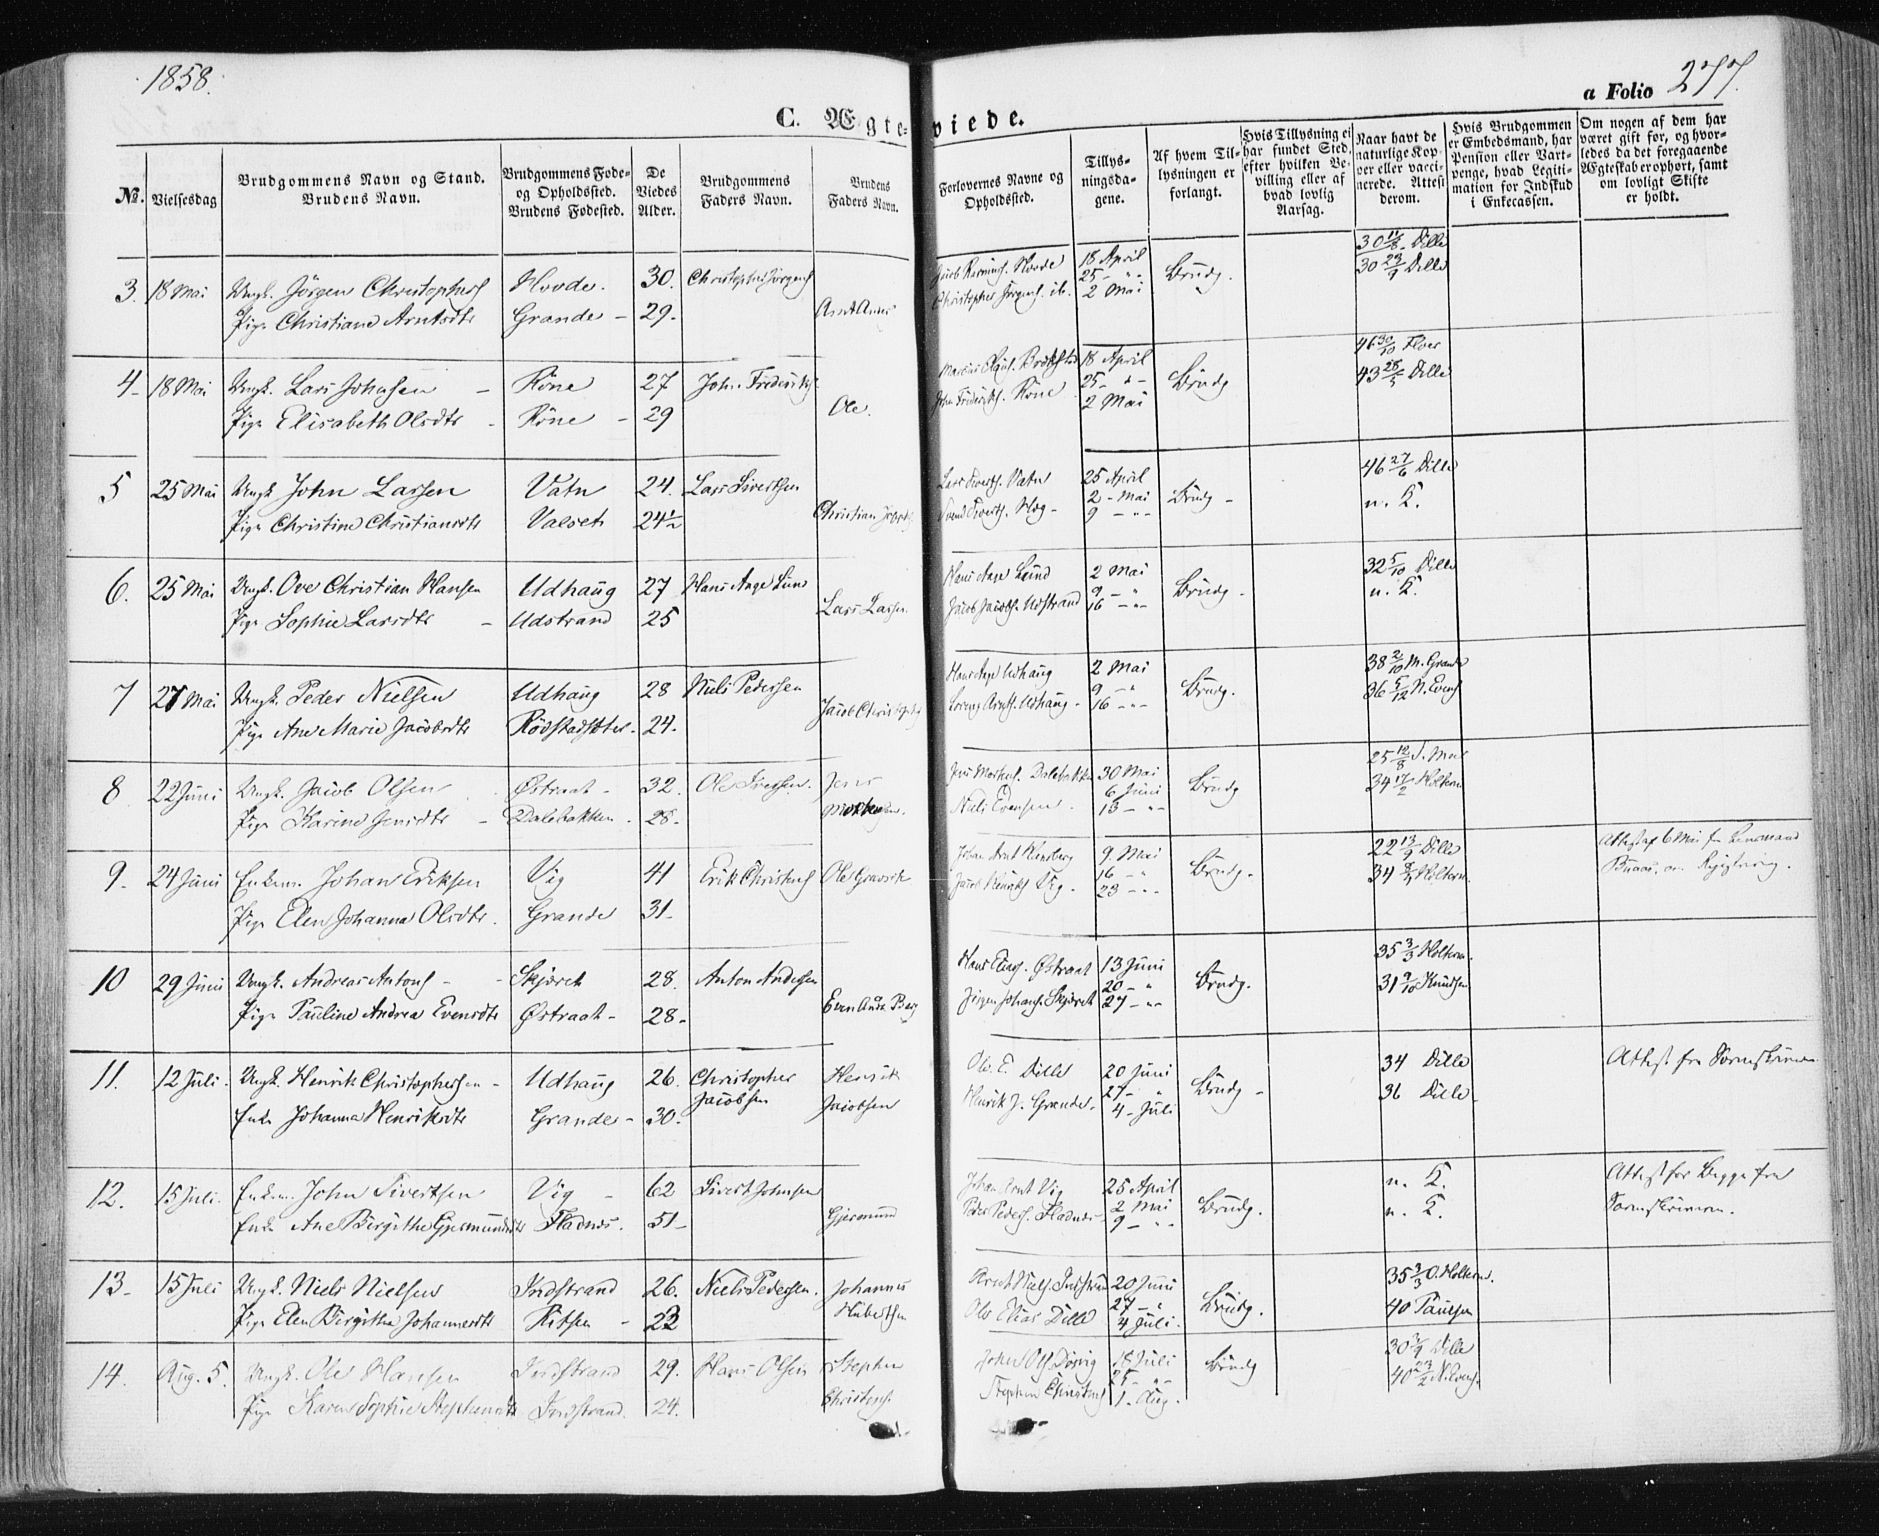 1858.
a Folio 277.
C. Ægte-viede.
No.
Vielsesdag
Brudgommens Navn og Stand.
Brudens Navn.
BrudgommensFøde-
og Opholdssted.
Brudens Fødested.
De
Viedes
Alder.
Brudgommens
Faders Navn.
Brudens
Faders Navn.
Forlovernes Navne og
Opholdssted.
Tillys-
ningsda-
gene.
Af hvem Til-
lysningen er
forlangt.
Hvis Tillysning ei
har fundet Sted,
efter hvilken Be-
villing eller af
hvad lovlig
Aarsag.
Naar havt de
naturlige Kop-
per eller vacci-
nerede. Attest
derom.
Hvis Brudgommen
er Embedsmand, har
Pension eller Vart-
penge, hvad Legiti-
mation for Indskud
i Enkecassen.
Om nogen af dem har
været gift før, og hvor-
ledes da det foregaaende
Ægteskab er ophørt, samt
om lovligt Skifte
er holdt.
3. 18 Mai Ungk. Jörgen Christophers Hovde. 30. Christopher Jörgens 18 April Brudg. 30 11/8 Dille
Pige Christiane Arntsdtr Grande - 29. Christopher Jörgens. ib. 25 - " - 2 Mai 30 23/9 Dille
4 - 18 Mai Ungk. Lars Johnsen - Röne 27 John Frederiks 18 April Brudg. 46 30/10
Pige Elisabeth Olsdtr - Röne - 29 Ole. John Frideriks. Röne 25 - " - 2 Mai 43 Dille
5 25 Mai Ungk John Larsen Vatn 24. Lars Sivertsen Lars Siverts. Vatn 25 April Brudg - 46 27/6 Dille
Pige Christine Christiansdtr Valset 24½ Christian 2 - Mai 9 - " - n. K.
6. 25 Mai Ungk. Ove Christian Hansen Udhaug 27 Hans Aage Lund Hans Aage Lund 2 Mai Brudg. 32 5/10 Dille
Pige Sophie Larsdtr - Udstrand 25 Lars Larsen. Jacob Jacobs. Udstrand 9 - " 16 - " - n. K.
7 27 Mai Ungk. Peder Nielsen Udhaug 28 Niels Pedersen Hans Aage Udhaug 2 Mai Brudg. 38 2/10 M. Grande
Pige Ane Marie Jacobsdtr 24. Jacob Udhaug - 9 - " 16 - " - 36 5/12 N. Evens
8 22 Juni Ungk. Jacob Olsen Østraat - 32. Ole Jens 30 Mai Brudg 25 12/8
Pige Karine Jensdtr - Dalebakken. 28. Niels Evensen. 6 Juni 13 - " - 34 17/2 Holtern
9. 24 Juni Enkem. Johan Eriksen Vig 41 Erik Christens Ole Johan Arnt 9. Mai Brudg. 22 13/9 Dille Attest af 6 Mai fra Lensmand
Pige Elen Johanna Olsdtr. Grande 31 - Vig. 16 - " 23 - " - 34 Holtern
10 29 Juni Ungk. Andreas Antons - - Skjöret 28. Anton Andersen Østraat 13 Juni Brudg. 35 3/3 Holtern.
Pige Pauline Andrea Evensdtr Østraat - 28 - Even Jörgen Johans. Skjöret 20 - " 27 - " - 31 9/10 Knudsen
11. 12 Juli. Ungk. Henrik Christophersen - Udhaug 26. Christopher Jacobsen Henrik Jacobsen Ole E. Dille 20 Juni Brudg - 34 Dille Attest fra
Enke Johanna Henriksdtr Grande - 30. Henrik J. Grande - 27 - " 4 - Juli 36 Dille
12. 15 Juli. Enkem. John Sivertsen Vig - 62 Sivert Johnsen Johan Arnt Vig 25 April Brudg. n. K. Attest for Begge fra
Enke Ane Birgithe Gjermundsdtr Fladnes. 51 - Gjermund Peder Peders. Fladnes - 2 Mai 9 - " - n. K.
13 - 15 Juli Ungk. Niels Nielsen Indstrand 26. Niels Pedersen. Johannes 20 Juni Brudg. 35 3/3 O. Holtern.
Pige Elen Birgitha Johannesdtr Ritsen - 23 Hubertsen Ole Elias Dille 27 - " 4 Juli. 40 Paulsen
14. Aug. 5. Ungk. Ole Hansen Indstrand 29. Hans Olsen Stephen 18 Juli Brudg 30 Dille
Pige Karen Sophie Stephensdtr Indstrand. 24. Christens. Stephen Christens 25 - " - 1. Aug. 40 23/2